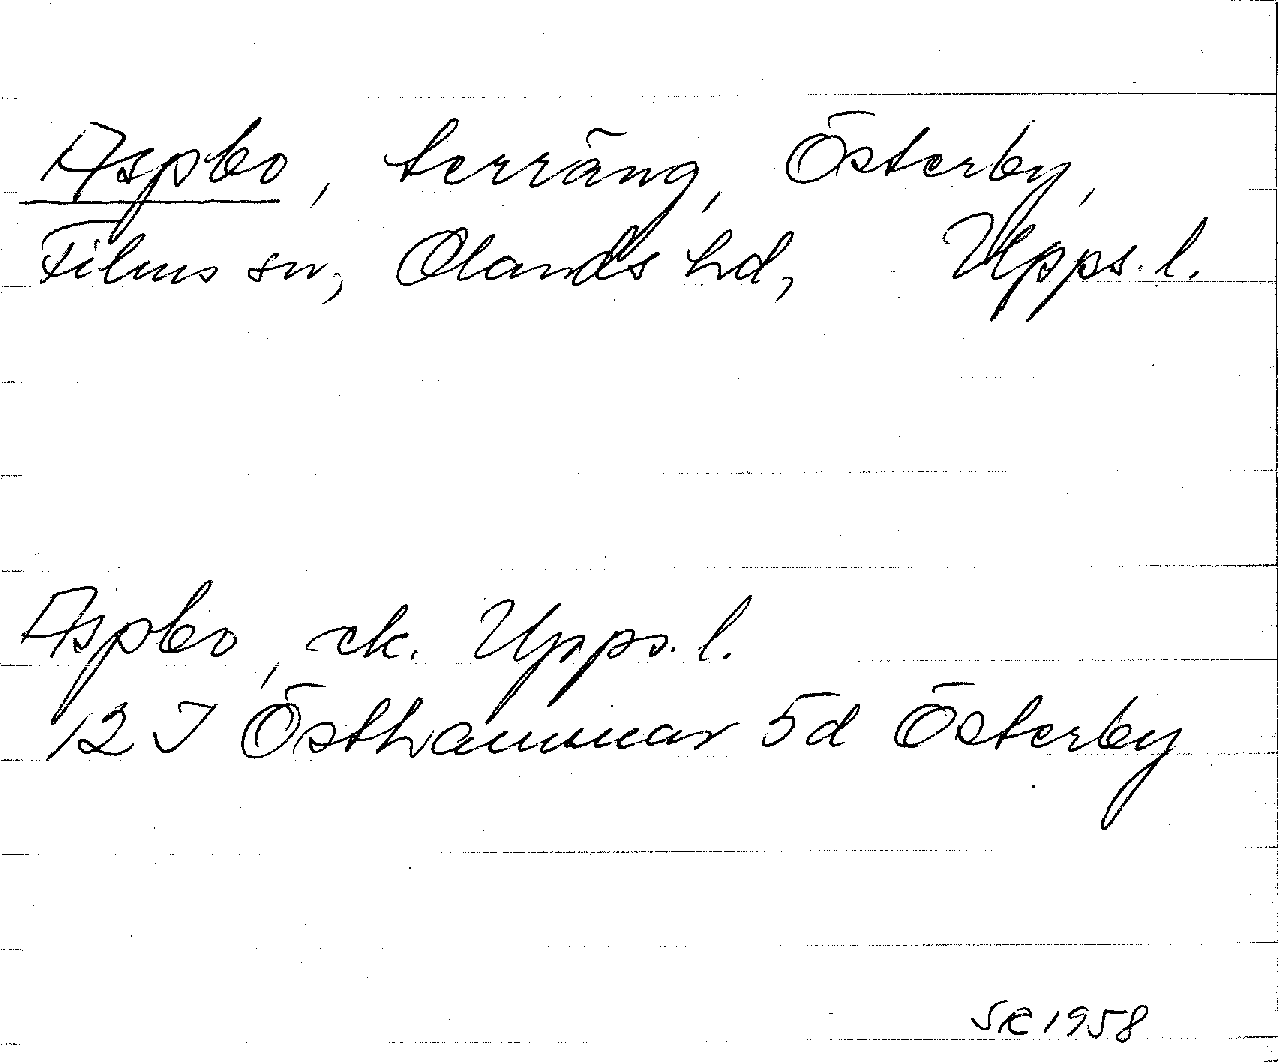 Aspbo, terräng, Österby,
Films sn, Olands hd, Upps. l.
Aspbo, ek. Upps. l.
12 I Östhammar 5d Österby
SR 1958